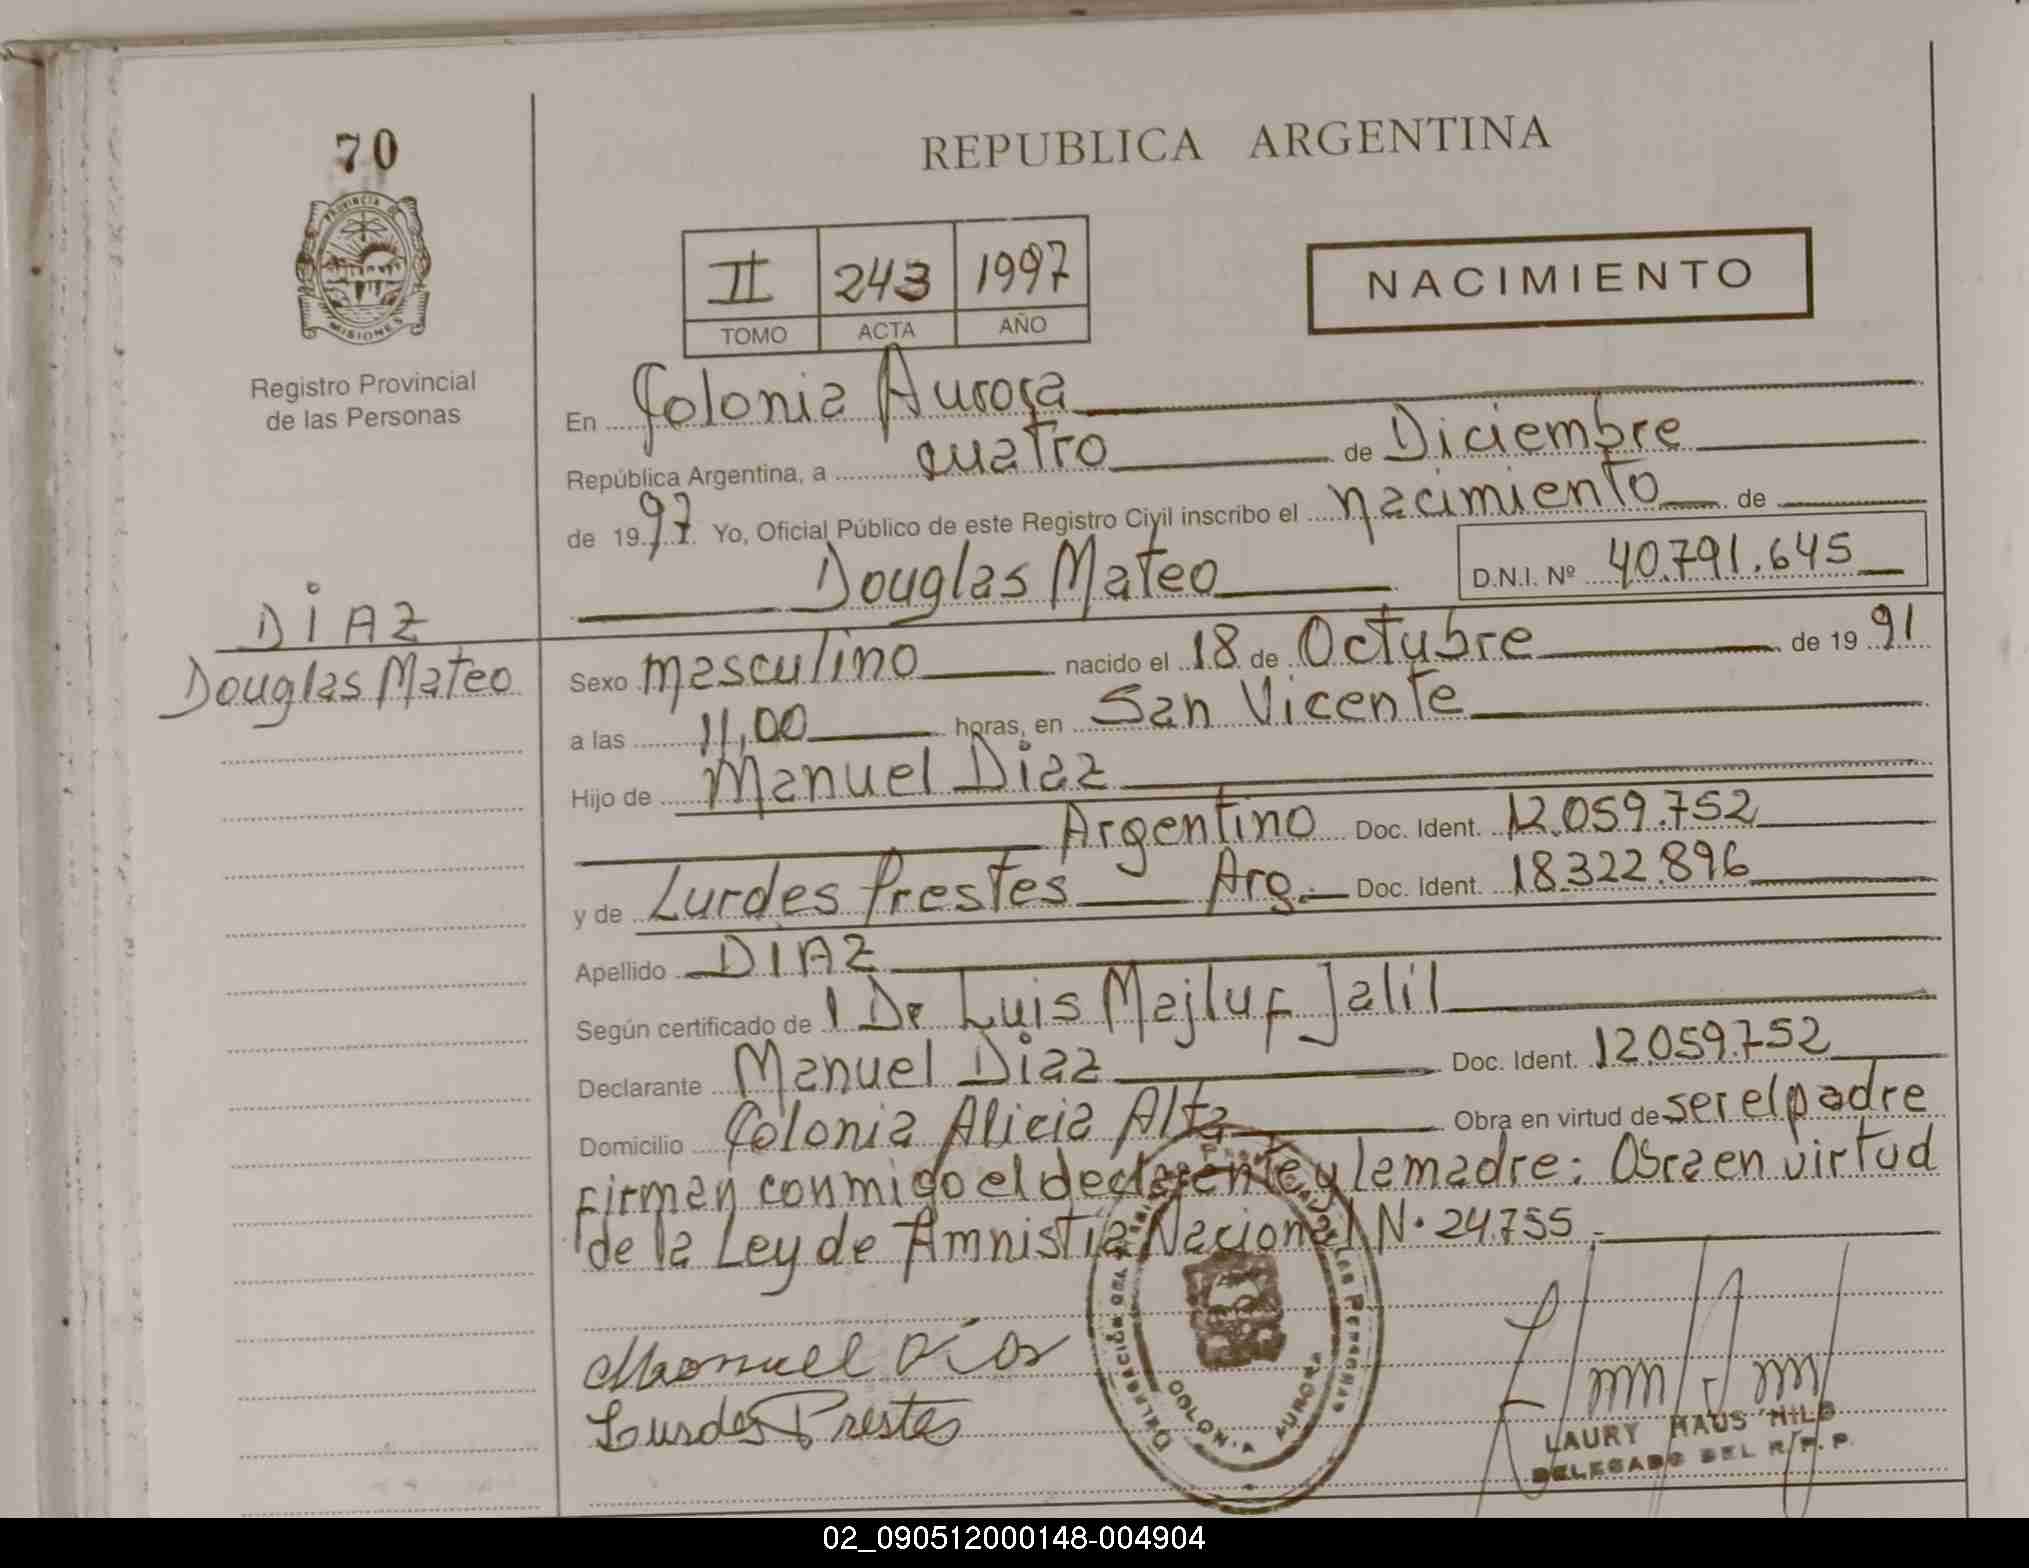 70
PROVINCIA DE
MISIONES
Registro Provincial
de las Personas
DIAZ
Douglas Mateo
REPUBLICA ARGENTINA
II 243 1997
TOMO ACTA AÑO
NACIMIENTO
En Colonia Aurora
República Argentina, a cuatro de Diciembre
de 1997. Yo, Oficial Público de este Registro Civil inscribo el nacimiento de
Douglas Mateo D.N.I. Nº 40.791.645
Sexo masculino nacido el 18 de Octubre de 19 91
a las 11,00 horas, en San Vicente
Hijo de Manuel Diaz
Argentino Doc. Ident. 12.059.752
y de Lurdes Prestes Arg. Doc. Ident. 18.322.896
Apellido DIAZ
Según certificado de 1 Dr Luis Majluf Jalil
Declarante Manuel Diaz Doc. Ident. 12.059.752
Domicilio Colonia Alicia Alta Obra en virtud de ser el padre
firman conmigo el declarente y la madre: Obra en virtud
de la Ley de Amnistía Nacional N. 24.755.
Manuel Dias
Lurdes Prestes
COLONIA AURORA
LAURY HAUS HILD
DELEGADO DEL R.P.P.
02_090512000148-004904